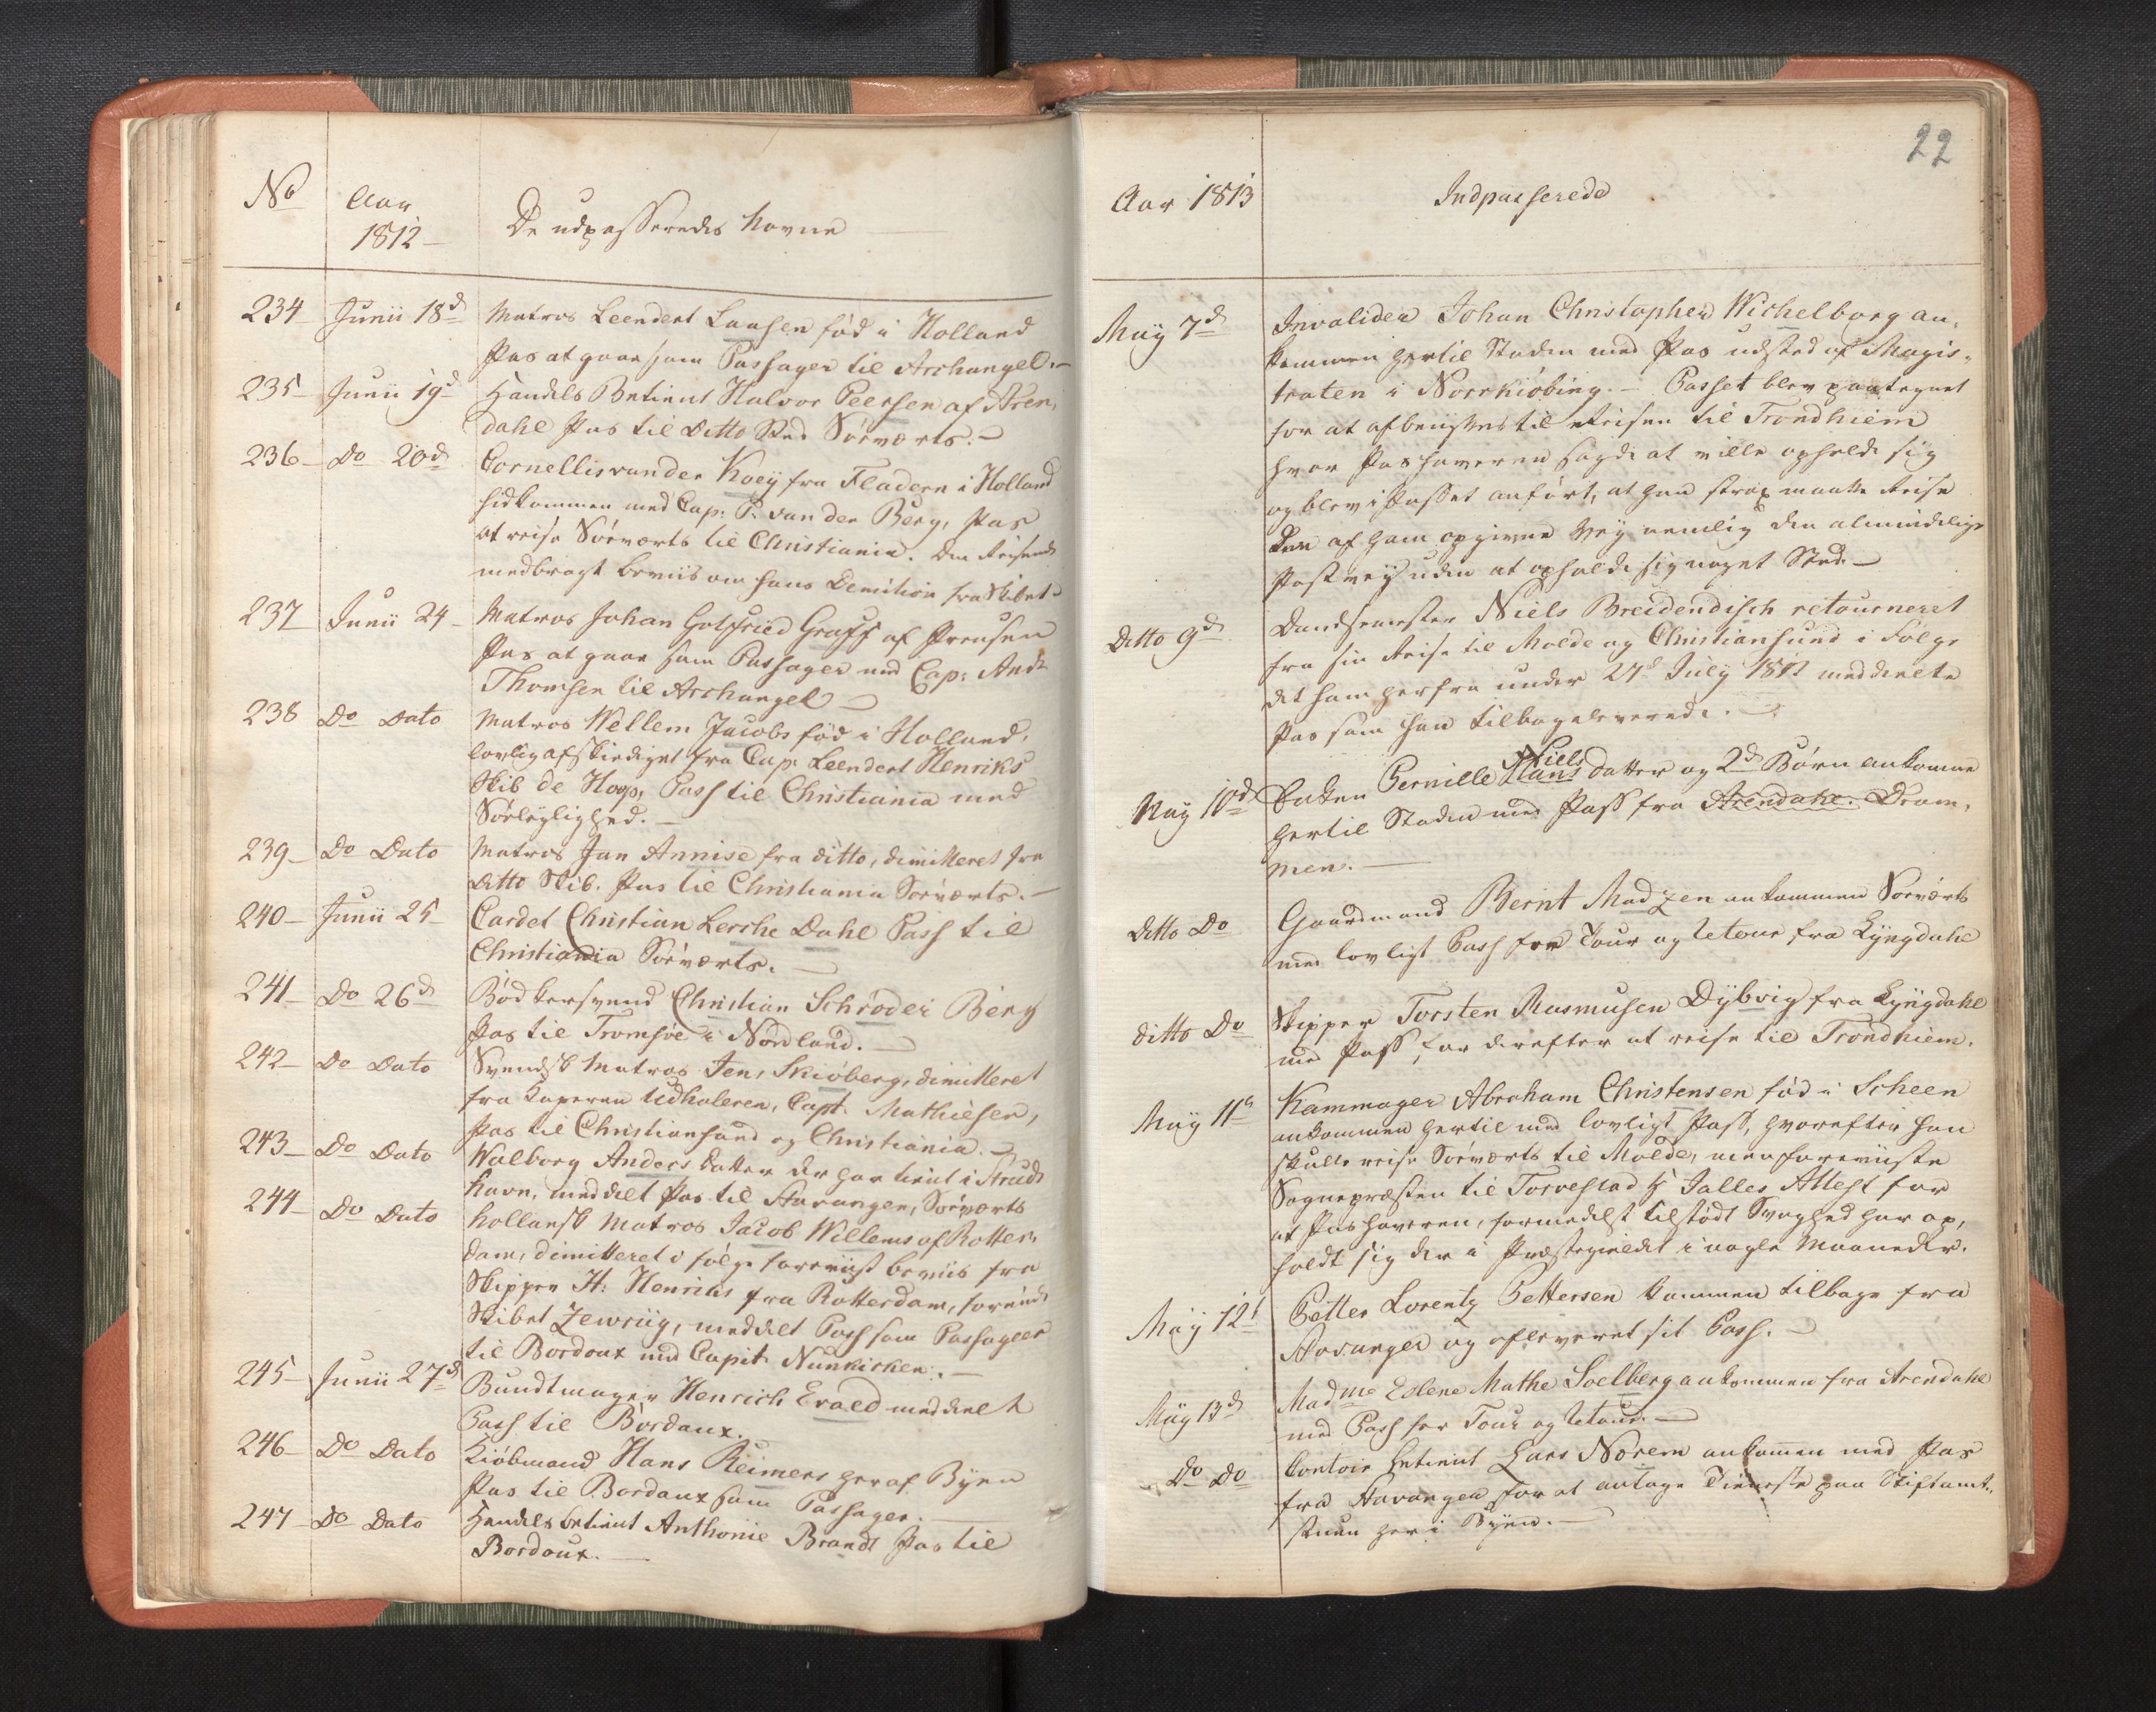 No Aar 1812 De udpasseredes Navne
234 Junii 18d Matros Leendert Laasen fød i Holland
Pas at gaae som Passager til Archangel.
235 Junii 19d Handels Betient Halvor Peersen af Aren,
dahl Pas til Ditto Sted Søeværts.
236 Do 20d Cornellis van der Koey fra Fladern i Holland
hidkommen med Cap: P. van der Berg, Pas
at reise Søeværts til Christiania. Den Reisende
medbragt beviis om hans Demition fra Skibet.
237 Junii 24 Matros Johan Gotfried Graff af Preusen
Pas at gaae som Passager med Cap: And:
Thomsen til Archangel
238 Do Dato Matros Wellem Jacobs fød i Holland,
lovlig afskediget fra Cap: Leendert Henriks
Skib de Hoop, Pass til Christiania med
Søeleylighed.
239 Do Dato Matros Jan Annise fra ditto, dimitteret fra
Ditto Skib. Pas til Christiania Søeværts.
240 Junii 25 Cardet Christian Lerche Dahl Pass til
Christiania Søeværts.
241 Do 26d Bødkersvend Christian Schrøder Berg
Pas til Tromsøe i Nordland.
242 Do Dato Svendsk Matros Jens Skiøberg, dimitteret
fra Kaperen Udhaleren, Capt: Mathiesen,
Pas til Christiansand og Christiania.
243 Do Dato Walborg Anders Datter der har tient i Struds
havn, meddelt Pas til Stavanger, Søeværts
244 Do Dato hollansk Matros Jacob Willems af Rotter,
dam, dimitteret i følge foreviist beviis fra
Skipper H: Henriks fra Rotterdam, førende
Skibet Zewriig, meddelt Pass som Passageer
til Bordoux med Capit: Nunkirken.
245 Junii 27d Bundtmager Henrich Evald meddeelt
Pass til Bordaux.
246 Do Dato Kiøbmand Hans Reimers her af Byen
Pas til Bordaux som Passager.
247 Do Dato Handels betient Anthonie Brandt Pas til
Bordoux.
22
Aar 1813 Indpasserede
May 7d Invaliden Johan Christopher Wichelborg an,
kommen hertil Staden med Pas udsted af Magis,
traten i Norrkiøbing. Passet blev paategnet
for at afbenyttes til Reisen til Trondhiem
hvor Pashaveren sagde at ville opholde sig
og blev i Passet anført, at han strax maatte Reise
den af ham opgivne Vey nemlig den almindelige
Postvey uden at opholde sig noget Sted.
Ditto 9d Dandsemester Niels Breidendisch retourneret
fra sin Reise til Molde og Christiansund i Følge
det ham herfra under 27d July 1812 meddeelte
Pas som han tilbageleverede.
Niels
May 10d Enken Pernille Hans datter og 2de Børn ankomne
hertil Staden med Pass fra Arendahl. Dram,
men.
Ditto Do Gaardmand Bernt Madzen ankommen Søeværts
med lovligt Pass for Tour og Retour fra Lyngdahl
Ditto Do Skipper Torsten Rasmusen Dybvig fra Lyngdahl
med Pass, for derefter at reise til Trondhiem.
May 11d Kammager Abraham Christensen fød i Scheen
ankommen hertil med lovligt Pass, hvorefter han
skulle reise Søeværts til Molde, men foreviiste
Sognepræsten til Torvestad H Jalles Attest for
at Pashaveren, formedelst tilstødt Svaghed har op,
holdt sig der i Præstegieldet i nogle Maaneder.
May 12t Petter Lorentz Pettersen kommen tilbage fra
Stavanger og afleveret sit Pass.
May 13d Madme Edlene Mathe Soelberg ankommen fra Arendahl
med Pass for Tour og Retour.
Do Do Contoir betient Lars Norem ankommen med Pas
fra Stavanger for at antage Tieneste paa Stiftamt,
stuen her i Byen.